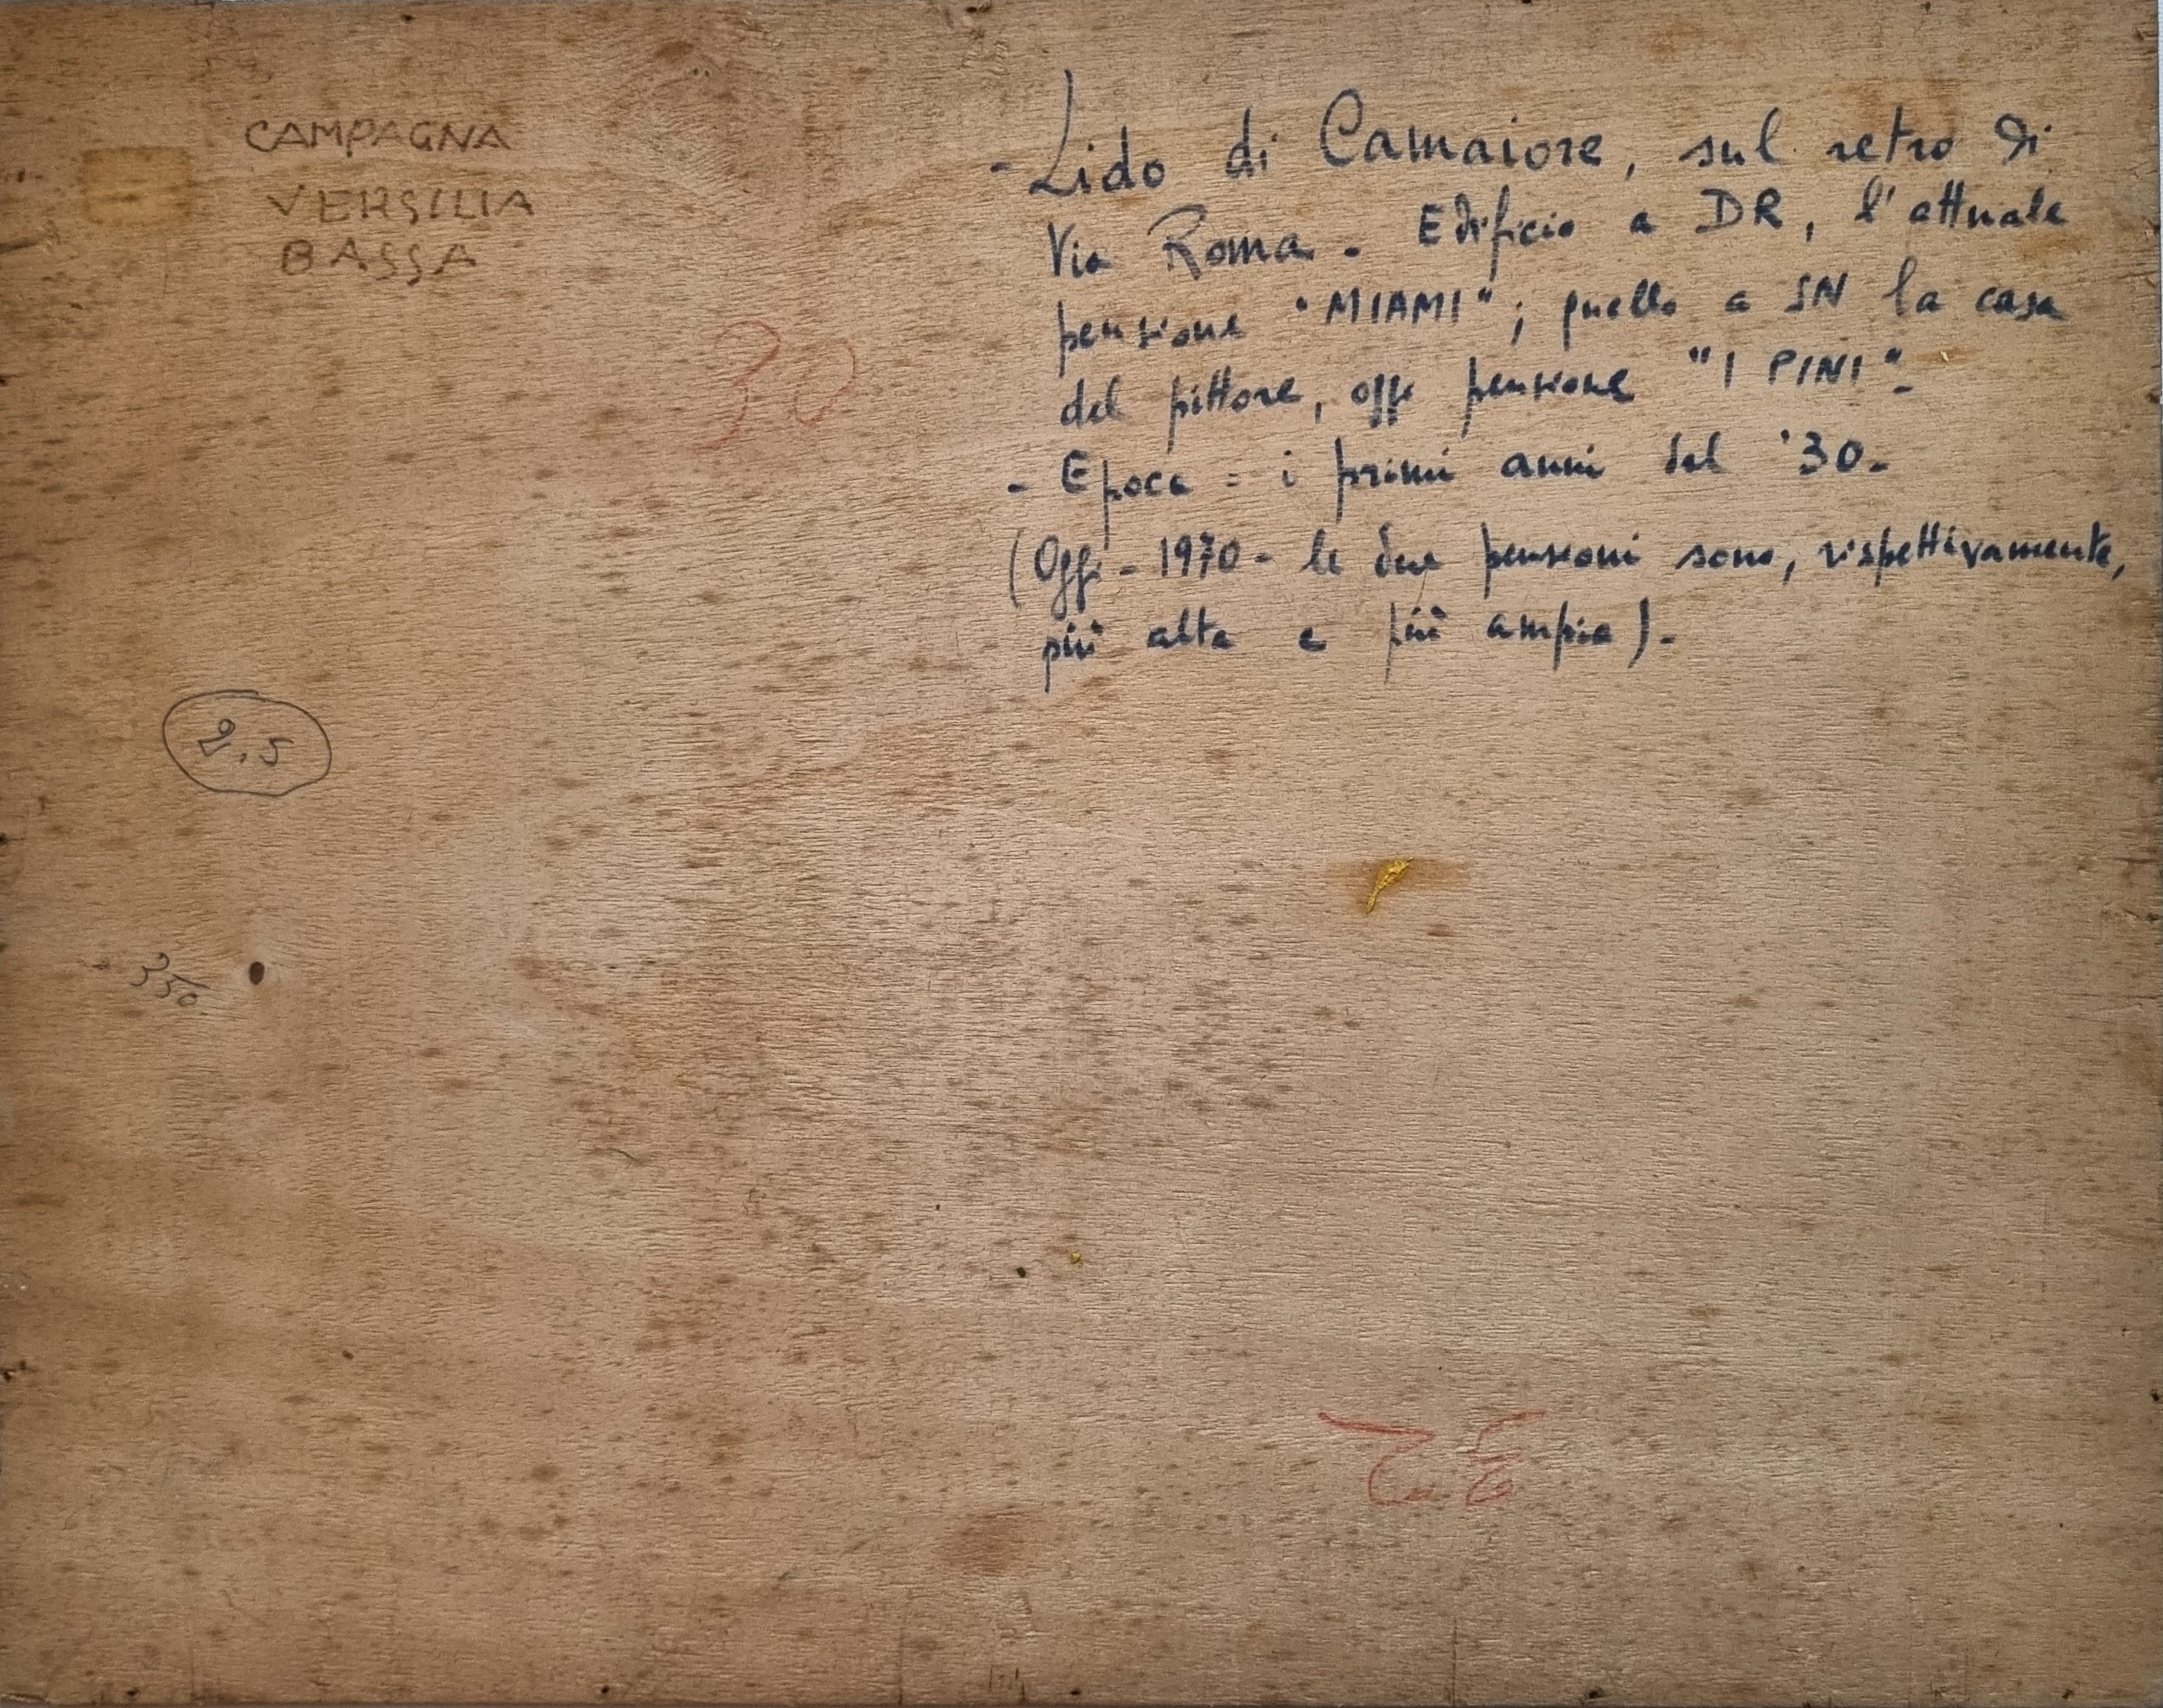 CAMPAGNA
VERSILIA
BASSA
- Lido di Camaiore, sul retro di
Via Roma - Edificio a DR, l'attuale
pensione "MIAMI"; quello a SN la casa
del pittore, oggi pensione "I PINI".
- Epoca = i primi anni del '30-
(Oggi - 1970 - le due pensioni sono, rispettivamente,
più alta e più ampia).-
30
2,5